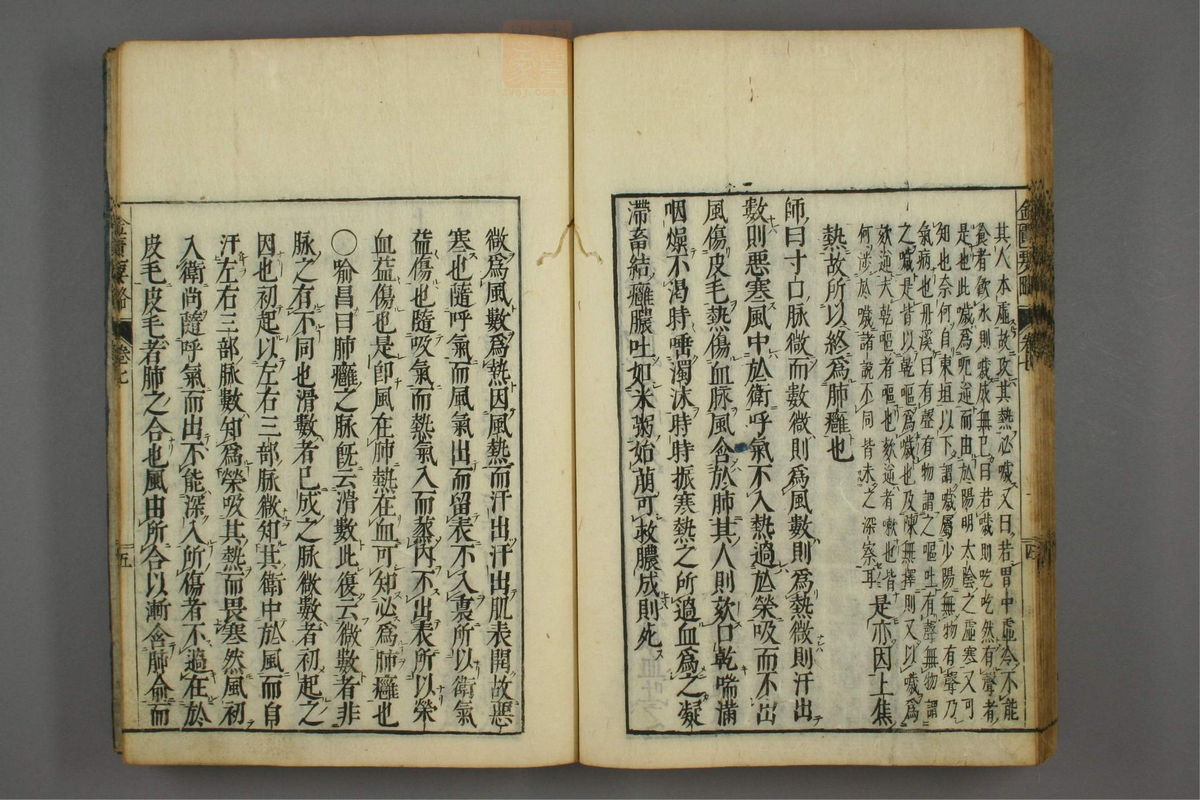 其人本虛故攻其熱必噦又曰若胃中虛冷不能
食者飲水則噦成無己曰若噦則吃吃然有聲者
是也此噦爲呃逆而由於陽明太陰之虛寒又可
知也奈何自東垣以下謂噦屬少陽無物有聲乃
氣病也丹溪曰有聲有物謂之嘔吐有聲無物謂
之噦是皆以乾嘔爲噦也及陳無擇則又以噦爲
欬逆夫乾嘔者嘔也欬逆者嗽也皆
何渉於噦諸說不同皆未之深察耳是亦因上焦
熱故所以終爲肺癰也
師曰寸口脉微而數微則爲風數則爲熱微則汗出
數則惡寒風中於衛呼氣不入熱過於榮吸而不出
風傷皮毛熱傷血脉風舍於肺其人則欬口乾喘滿
咽燥不渴時唾濁沫時時振寒熱之所過血爲之凝
滯畜結癰膿吐如米粥始萌可救膿成則死
金匱要略 卷七 四
微爲風數爲熱因風熱而汗出汗出肌表開故惡
寒也隨呼氣而風氣出而留表不入裏所以衛氣
益傷也隨吸氣而熱氣入而蒸内不出表所以榮
血益傷也是卽風在肺熱在血可知必爲肺癰也
○喻昌曰肺癰之脉既云滑數此復云微數者非
脉之有不同也滑數者已成之脉微數者初起之
因也初起以左右三部脉微知其衛中於風而自
汗左右三部脉數知爲榮吸其熱而畏寒然風初
入衛尚隨呼氣而出不能深入所傷者不過在於
皮毛皮毛者肺之合也風由所合以漸舍肺俞而
金匱要略 卷七 五